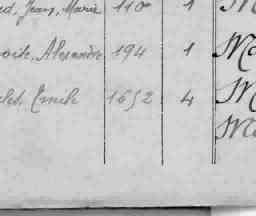 Jean, Marie 110 1 M
Alexandre 194 1 Ma
Emile 1652 4 M
Ma